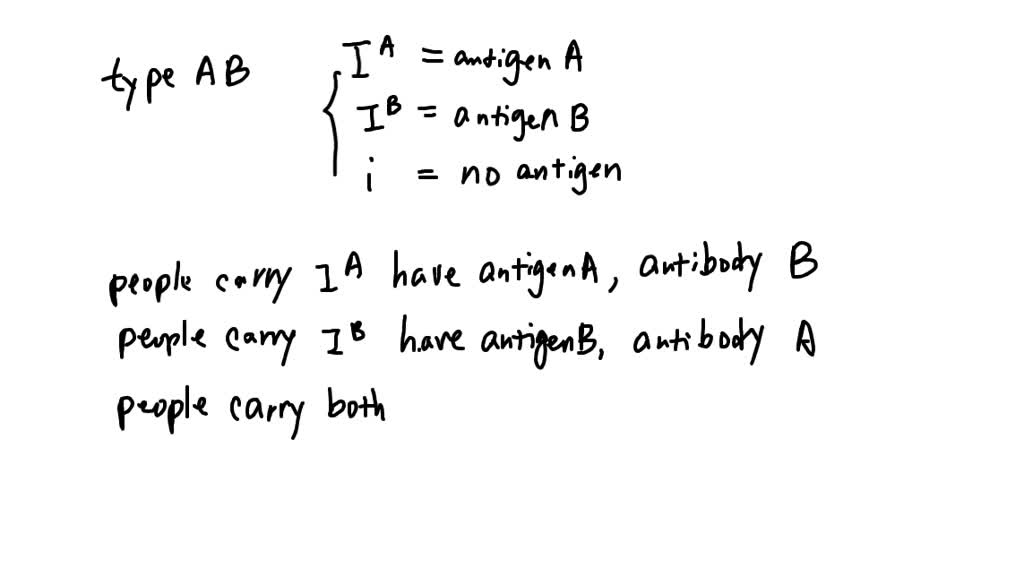 type AB
I^A = antigen A
I^B = antigen B
i = no antigen
people carry I^A have antigen A, antibody B
people carry I^B have antigen B, antibody A
people carry both